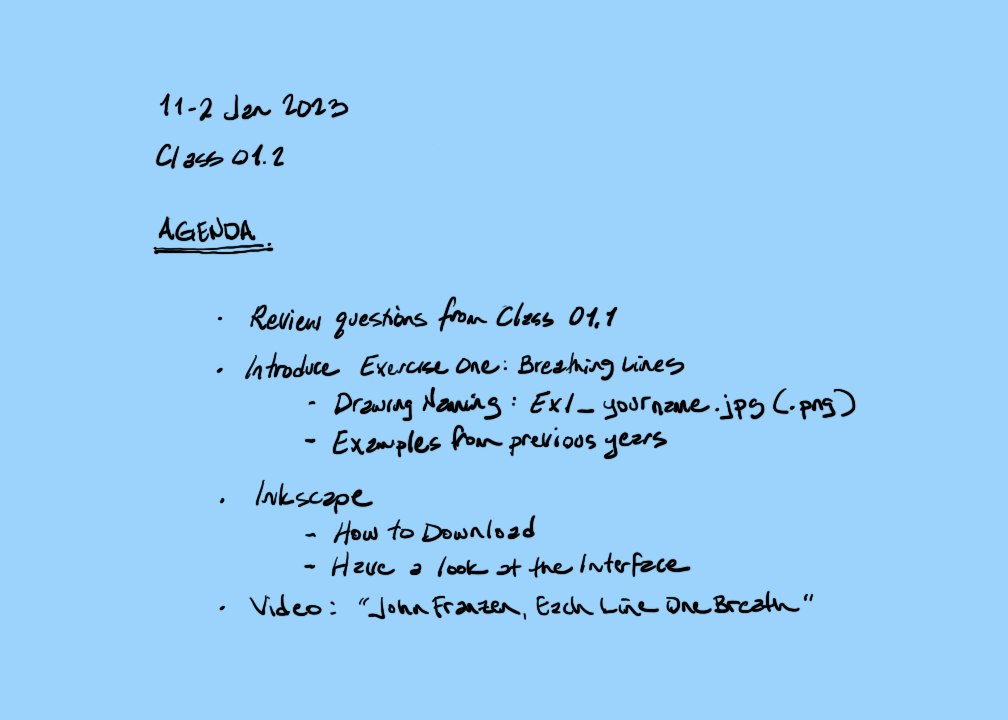 11-2 Jan 2023
Class 01.2
AGENDA.
· Review questions from Class 01.1
· Introduce Exercise One: Breathing Lines
- Drawing Naming: Ex1_yourname.jpg (.png)
- Examples from previous years
· Inkscape
- How to Download
- Have a look at the Interface
· Video: "John Franzen, Each Line One Breath"